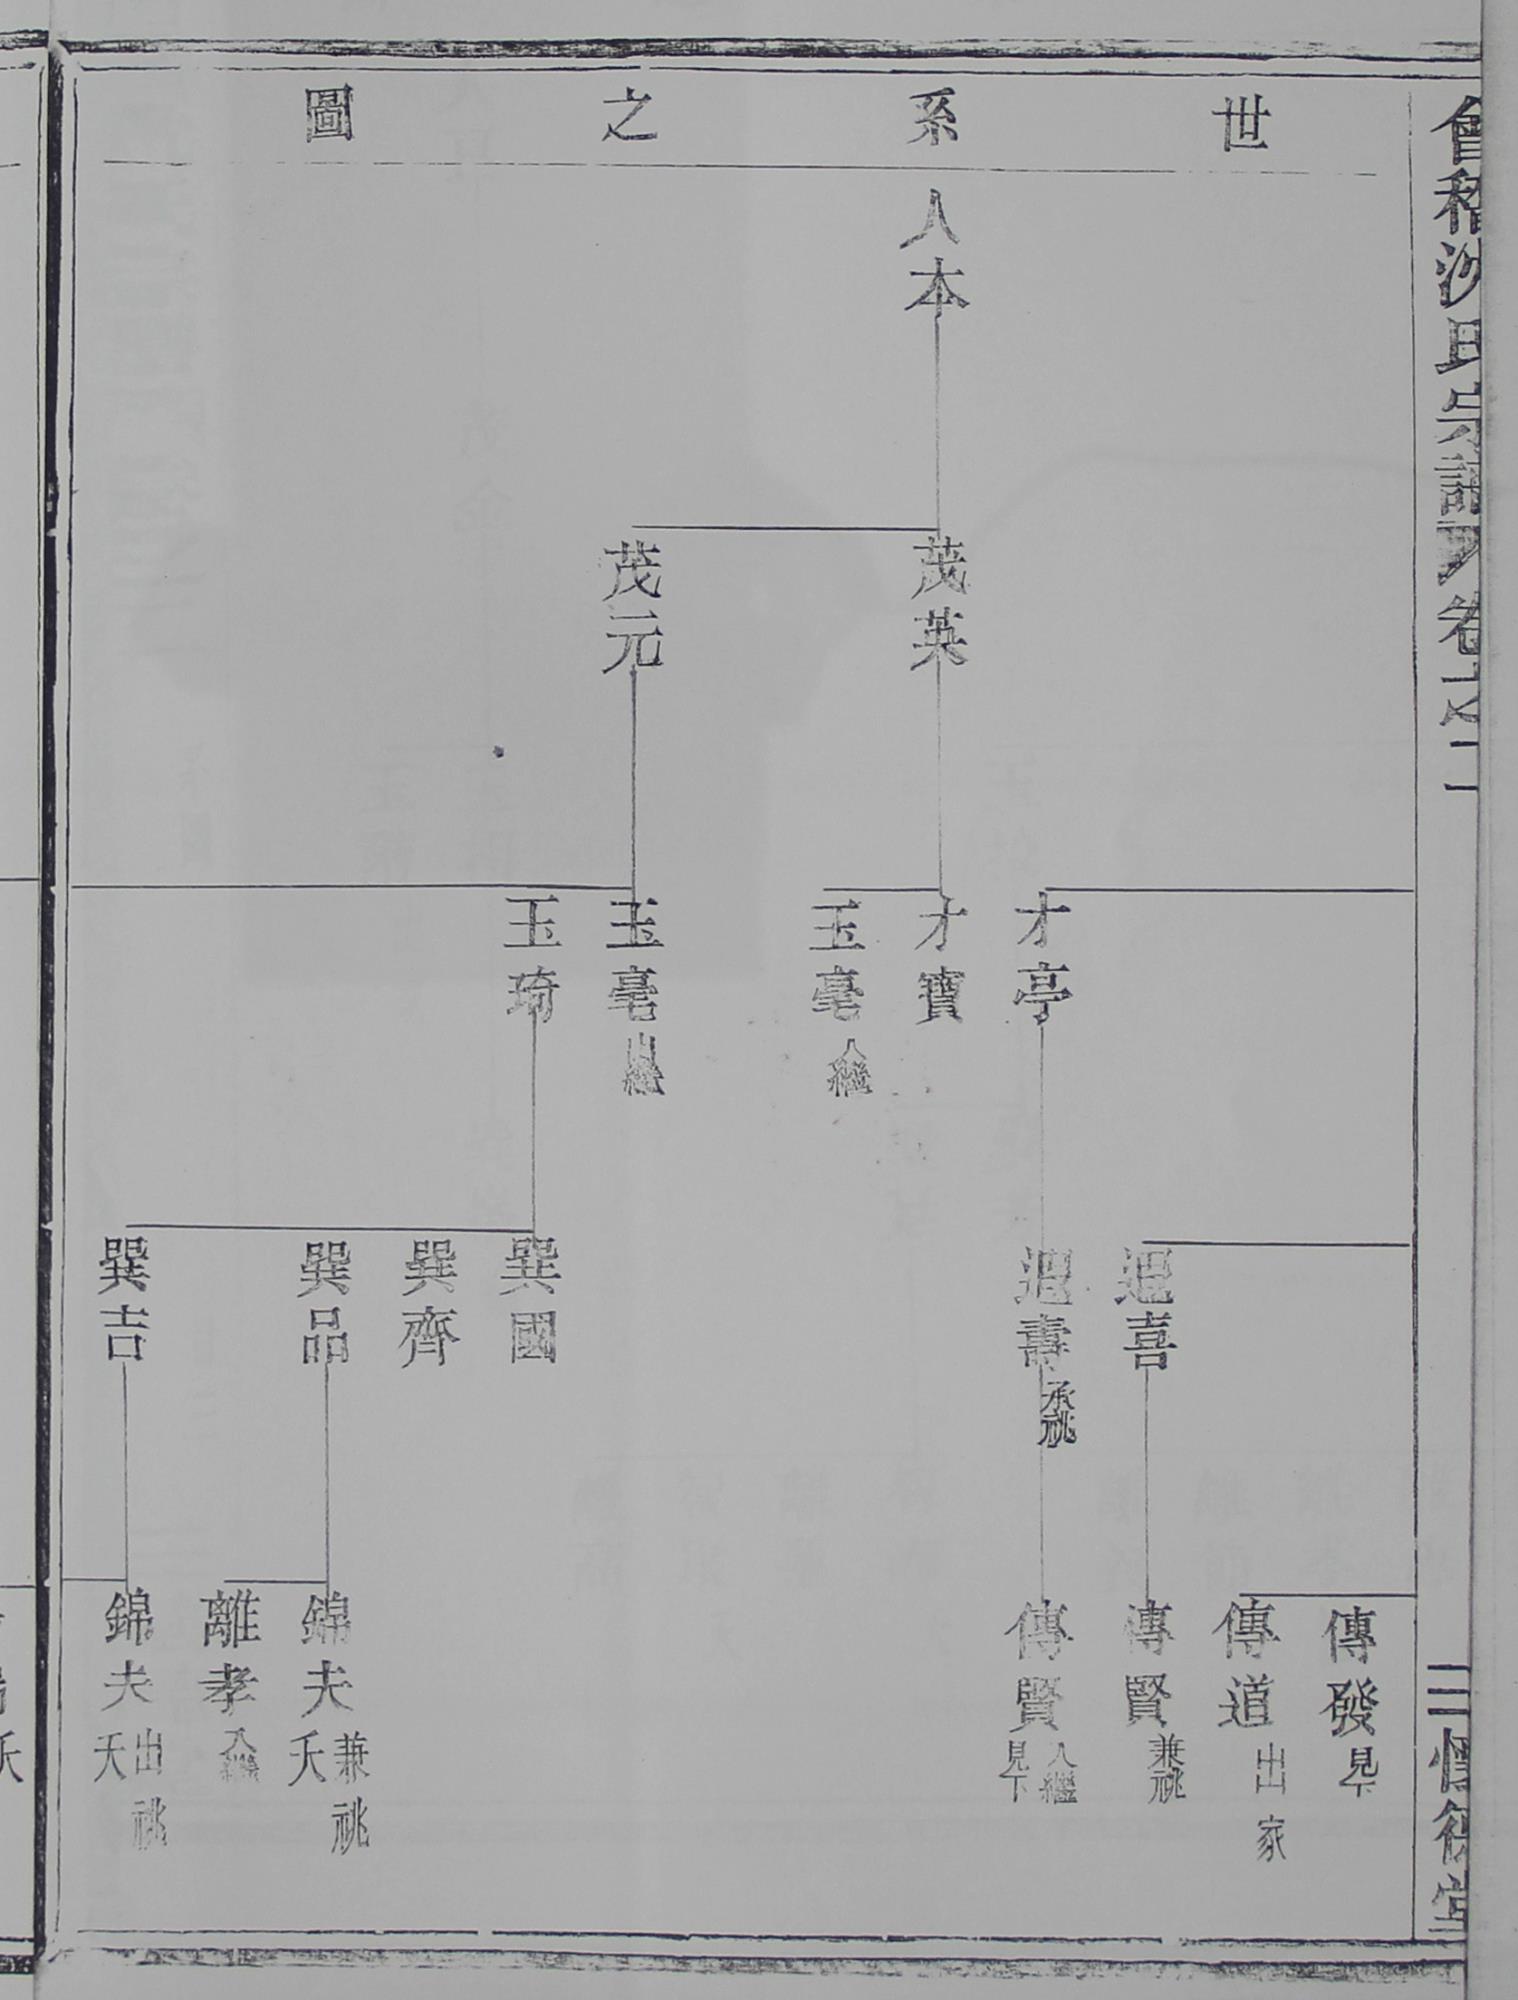 會稽沙氏宗譜 卷十之二
世系之圖
人本
茂英
茂元
才亭
才寶
玉毫 入繼
玉毫 出繼
玉琦
迴喜
迴壽 承祧
巽國
巽齊
巽品
巽吉
傳發 見下
傳道 出家
傳賢 兼祧
傳賢 入繼 見下
錦夫 兼祧 夭
離孝 入繼
錦夫 出祧 夭
三
堂
夭